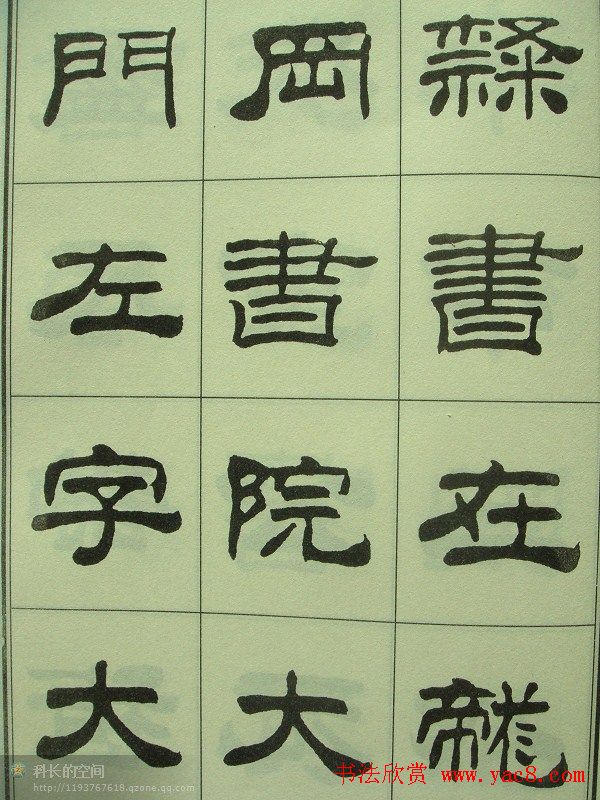 隸書在龍
岡書院大
門左字大
科长的空间
http://1193767618.qzone.qq.com
书法欣赏 www.yac8.com